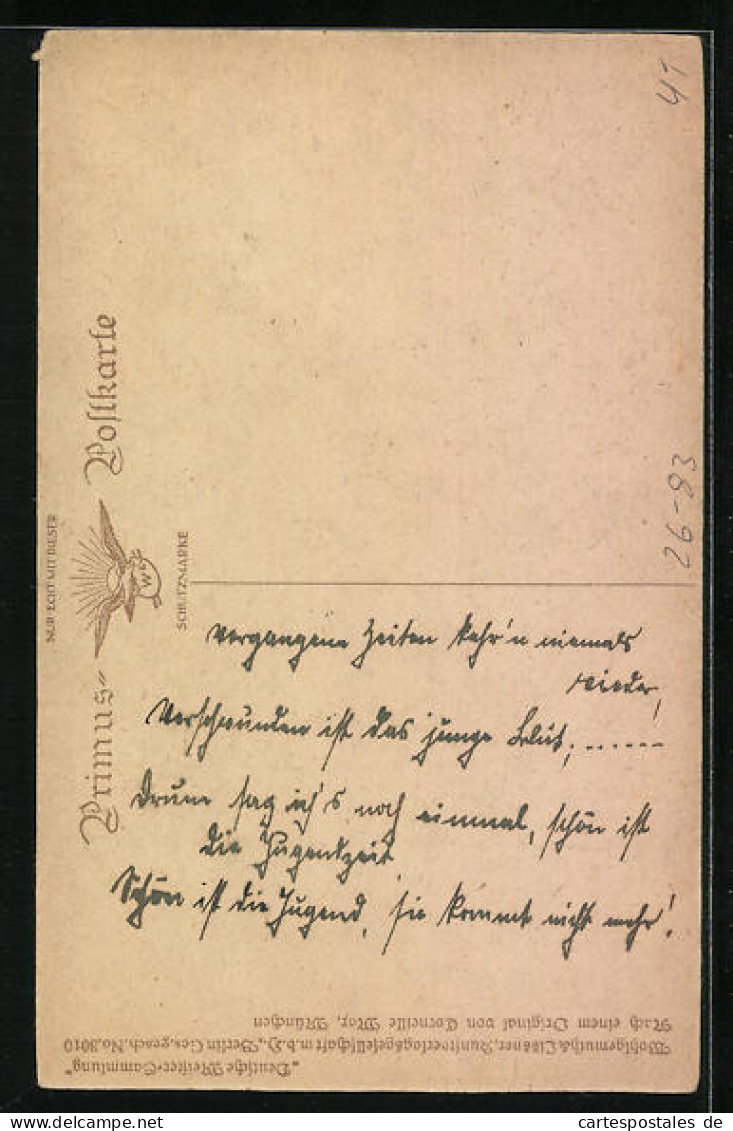 41
26-93
NUR ECHT MIT DIESER
Primus-Postkarte
W&L
SCHUTZMARKE
Vergangene Zeiten kehr'n niemals
wieder,
Verschwunden ist das junge Blut; ......
Drum sag ich's noch einmal, schön ist
die Jugendzeit
Schön ist die Jugend, sie kommt nicht mehr!
„Deutsche Meister-Sammlung"
Wohlgemuth & Lißner, Kunstverlagsgesellschaft m.b.H., Berlin Ges. gesch. No. 3010
Nach einem Original von Corneille Max, München
cartespostales de